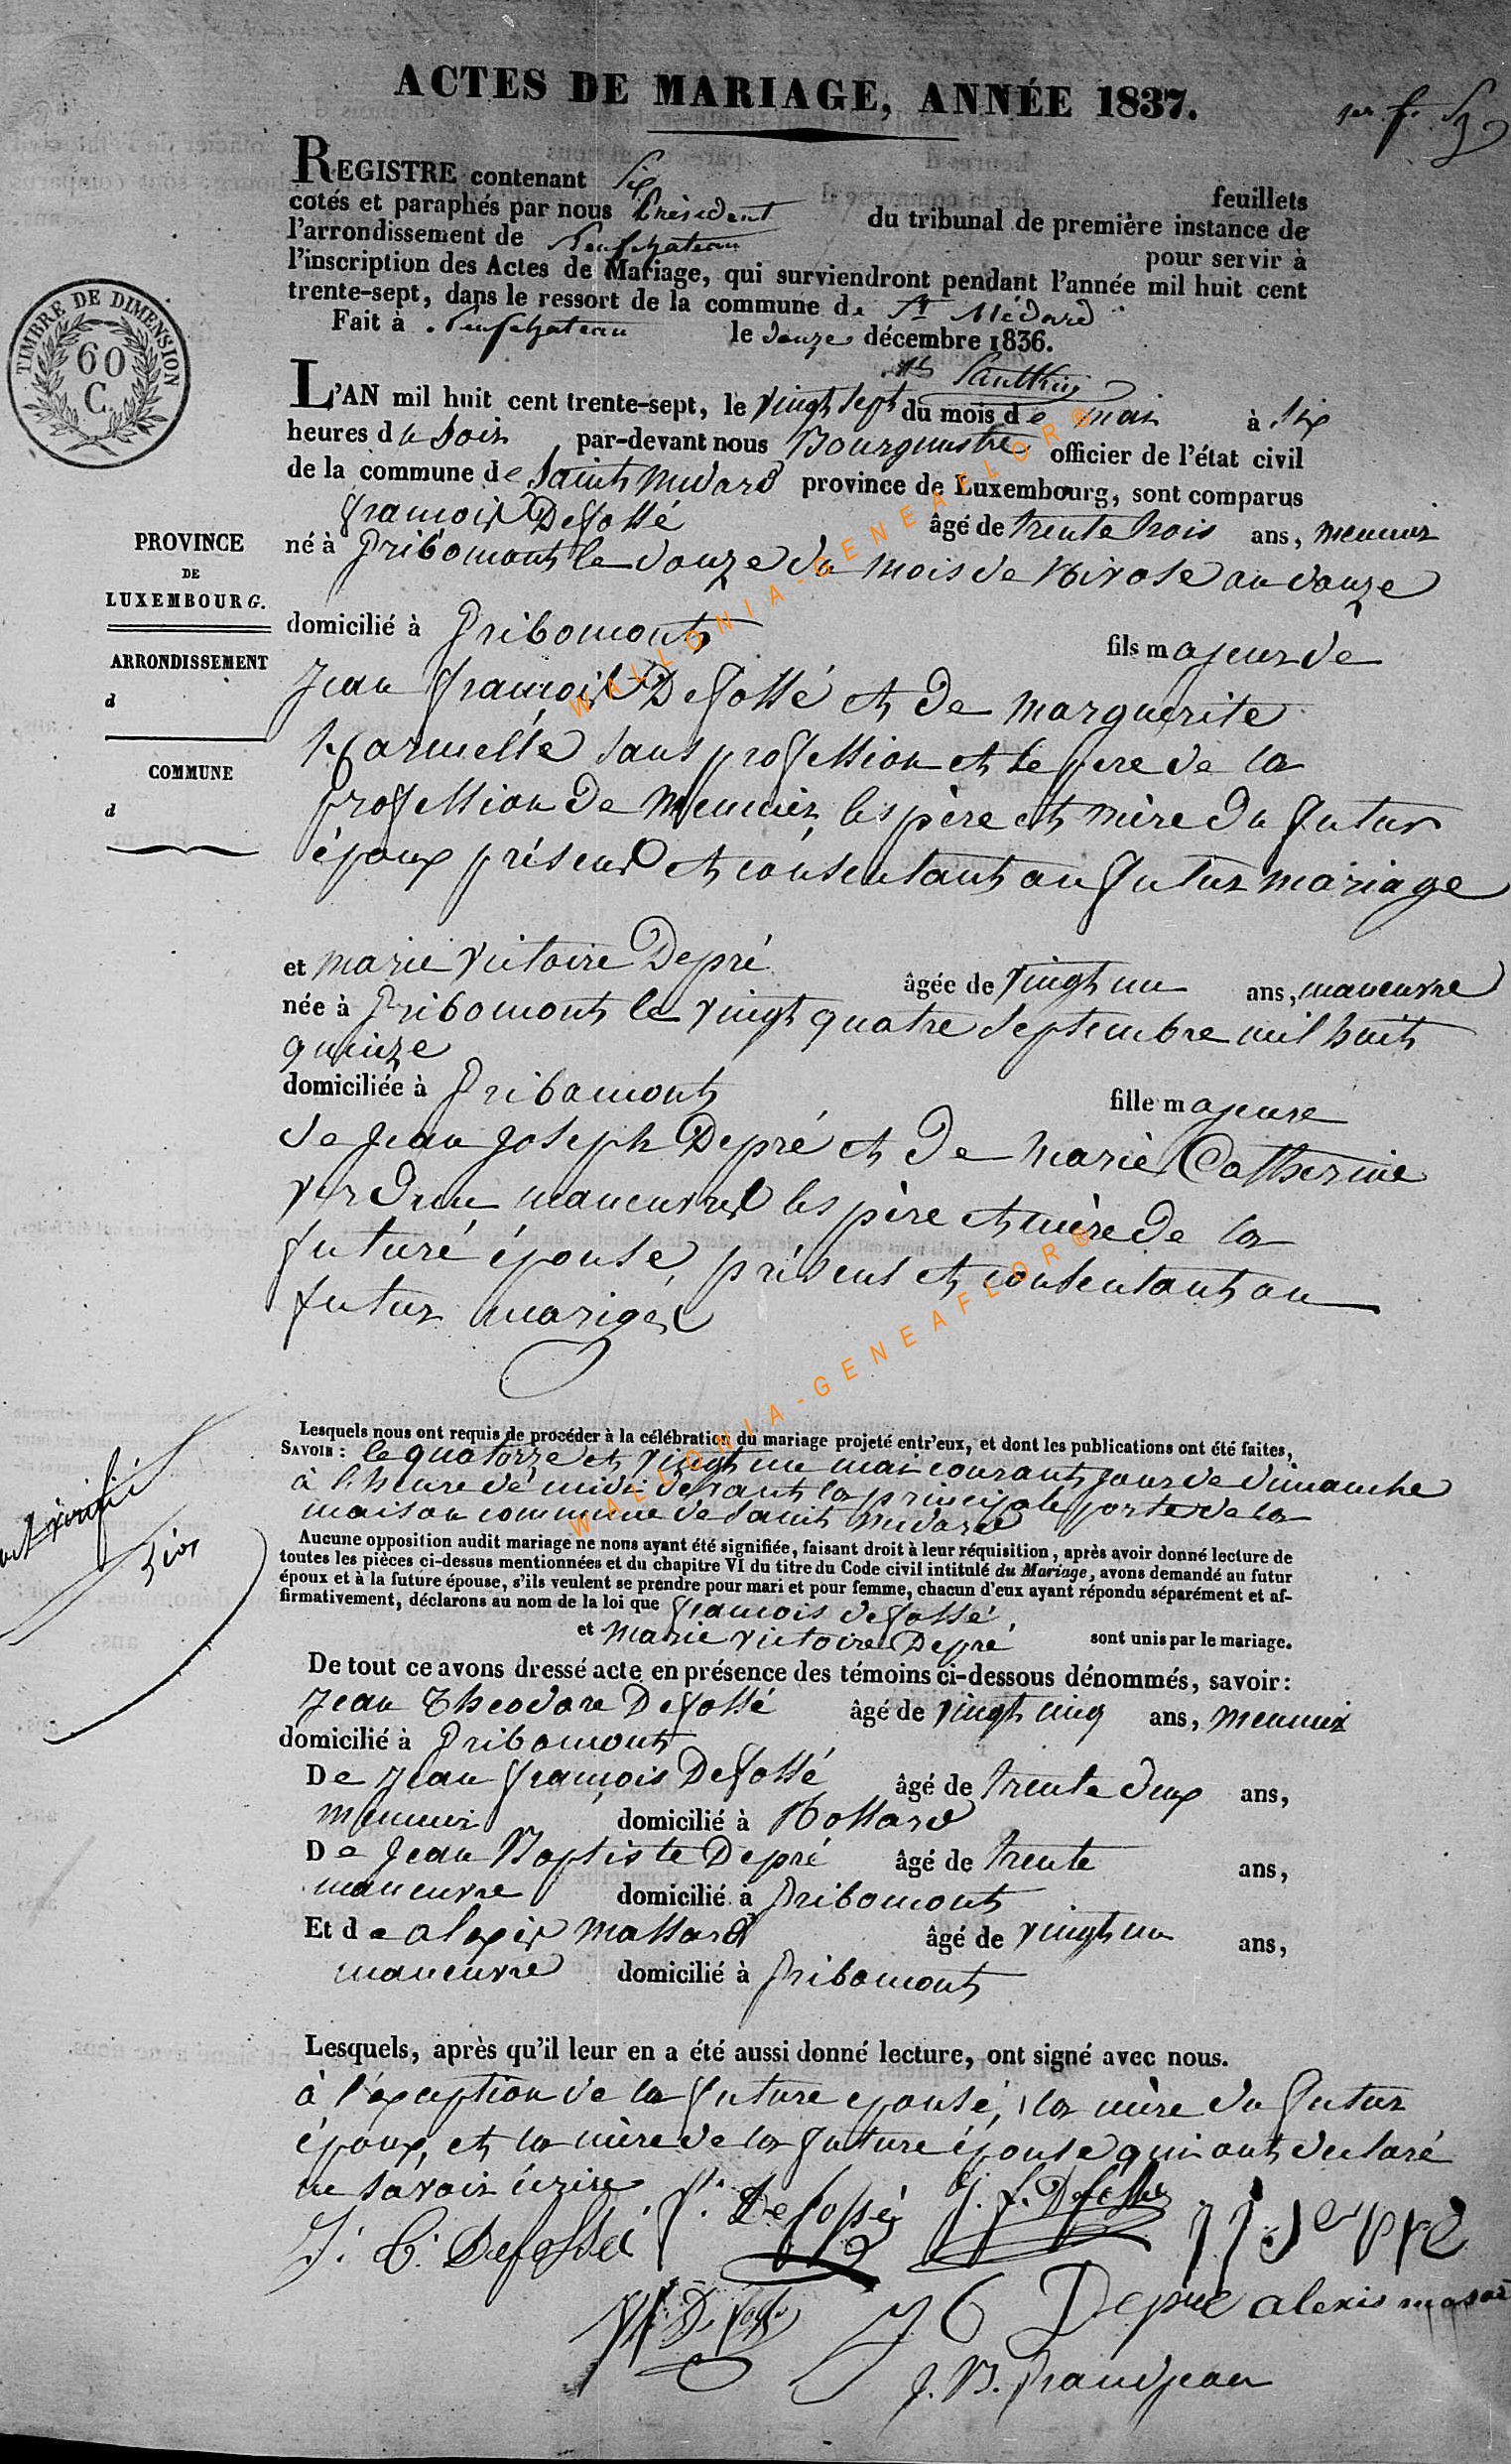 ACTES DE MARIAGE, ANNÉE 1837.
REGISTRE contenant Six feuillets
cotés et paraphés par nous Président du tribunal de première instance de
l'arrondissement de Neufchateau pour servir à
l'inscription des Actes de Mariage, qui surviendront pendant l'année mil huit cent
trente-sept, dans le ressort de la commune de St Médard
Fait à Neufchateau le douze décembre 1836.
TIMBRE DE DIMENSION
60
C.
L'AN mil huit cent trente-sept, le vingt sept du mois de mai à six
heures du soir par-devant nous Bourgmestre officier de l'état civil
de la commune de Saint Médard province de Luxembourg, sont comparus
françois Defossé âgé de trente trois ans, meunier
né à Gribomont le douze du mois de Nivose an douze
PROVINCE
DE
LUXEMBOURG.
domicilié à Gribomont fils majeur de
ARRONDISSEMENT
d
Jean françois Defossé et de marguerite
sans profession et le pere de la
COMMUNE
d
profession de meunier, les père et mère du futur
époux présent et consentant au futur mariage
et marie Victoire Depré âgée de vingt un ans, maneuvre
née à Gribomont le vingt quatre septembre mil huit
quinze
domiciliée à Gribomont fille majeure
de Jean Joseph Depré et de marie Catherine
verdun maneuvre les père et mère de la
future épouse, présent et consentant au
futur mariage
Lesquels nous ont requis de procéder à la célébration du mariage projeté entr'eux, et dont les publications ont été faites,
SAVOIR : le quatorze et vingt un mai courant jour de dimanche
à l'heure de midi devant la principale porte de la
maison commune de saint médard
Aucune opposition audit mariage ne nous ayant été signifiée, faisant droit à leur réquisition, après avoir donné lecture de
toutes les pièces ci-dessus mentionnées et du chapitre VI du titre du Code civil intitulé du Mariage, avons demandé au futur
époux et à la future épouse, s'ils veulent se prendre pour mari et pour femme, chacun d'eux ayant répondu séparément et af-
firmativement, déclarons au nom de la loi que françois defossé
et marie victoire Depré sont unis par le mariage.
De tout ce avons dressé acte en présence des témoins ci-dessous dénommés, savoir:
Jean Théodore Defossé âgé de vingt cinq ans, meunier
domicilié à Gribomont
De Jean françois Defossé âgé de trente deux ans,
meunier domicilié à
De Jean Baptiste Depré âgé de trente ans,
maneuvre domicilié à Gribomont
Et de alexis Massard âgé de vingt un ans,
maneuvre domicilié à Gribomont
Lesquels, après qu'il leur en a été aussi donné lecture, ont signé avec nous.
à l'exception de la future épouse, la mère du futur
époux, et la mère de la future épouse qui ont declaré
ne savoir écrire
J. T. Defossé f. Defossé J. f. Defossé
J B Depré alexis masard
J. B. Grandjean
WALLONIA-GENEAFLOR®
WALLONIA-GENEAFLOR®